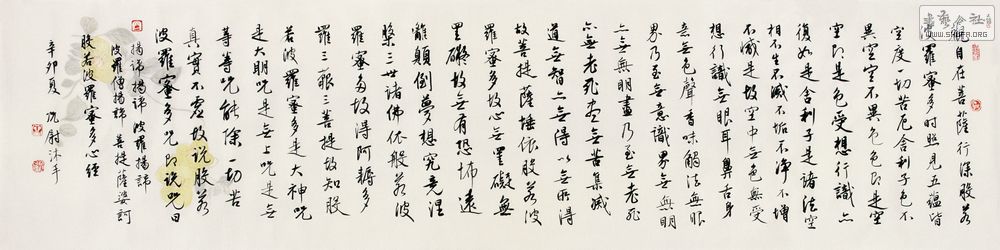 觀自在菩薩行深般若
波羅蜜多時照見五蘊皆
空度一切苦厄舍利子色不
異空空不異色色即是空
空即是色受想行識亦
復如是舍利子是諸法空
相不生不滅不垢不淨不增
不減是故空中無色無受
想行識無眼耳鼻舌身
意無色聲香味觸法無眼
界乃至無意識界無無明
亦無無明盡乃至無老死
亦無老死盡無苦集滅
道無智亦無得以無所得
故菩提薩埵依般若波
羅蜜多故心無罣礙無
罣礙故無有恐怖遠
離顛倒夢想究竟涅
槃三世諸佛依般若波
羅蜜多故得阿耨多
羅三藐三菩提故知般
若波羅蜜多是大神咒
是大明咒是無上咒是無
等等咒能除一切苦
真實不虛故說般若
波羅蜜多咒即說咒曰
揭諦揭諦 波羅揭諦
波羅僧揭諦 菩提薩婆訶
般若波羅蜜多心經
辛卯夏 沈尉沐手